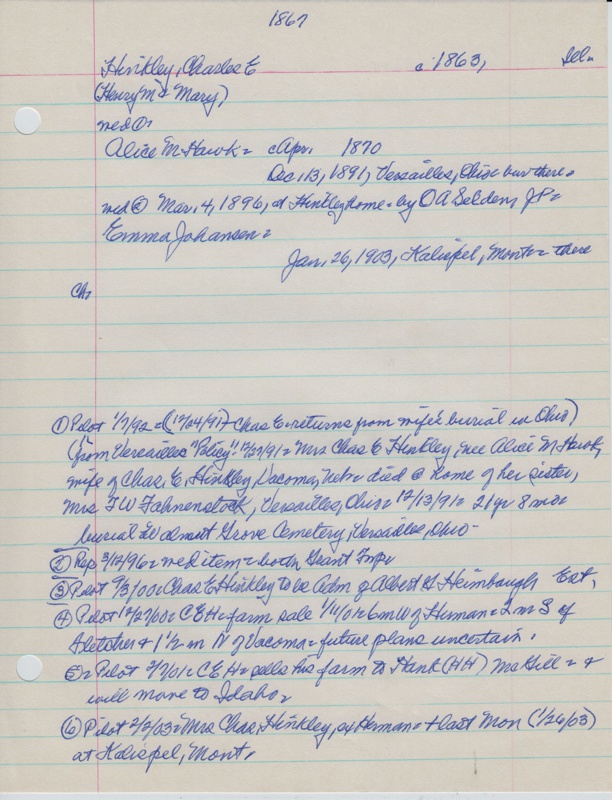 1867
Hinkley, Charles E c 1863, Ill.
(Henry M & Mary)
med ①
Alice M Hawk = c Apr. 1870
Dec. 13, 1891, Versailles, Ohio = bur there =
med ② Mar. 4, 1896, at Hinkley home = by O A Selden, JP =
Emma Johansen =
Jan. 26, 1903, Kalispel, Mont = there
Ch:
① Pilot 1/7/92 = (12/24/91) = Chas E returns from wife's burial in Ohio)
(from Versailles "Policy" 12/27/91 = Mrs Chas E Hinkley, nee Alice M Hawk,
wife of Chas. E. Hinkley, Vacoma, Neb = died @ home of her sister,
Mrs F W Fahnenstock, Versailles, Ohio = 12/13/91 = 21 yr 8 mo =
burial Walnut Grove Cemetery, Versailles, Ohio -
② Rep 3/12/96 = wed item = both Grant Twp
③ Pilot 9/3/00 = Chas E Hinkley to be Adm of Albert G Heimbaugh Est,
④ Pilot 12/27/00 = C E H = farm sale 1/14/01 = 6 m W of Herman = 2 m S of
Fletcher & 1½ m N of Vacoma = future plans uncertain.
5 = Pilot 2/7/01 = C E H = sells his farm to Hank (HH) McGill = &
will move to Idaho =
⑥ Pilot 2/5/03 = Mrs Chas. Hinkley, ex Herman = + last Mon (1/26/03)
at Kalispel, Mont.